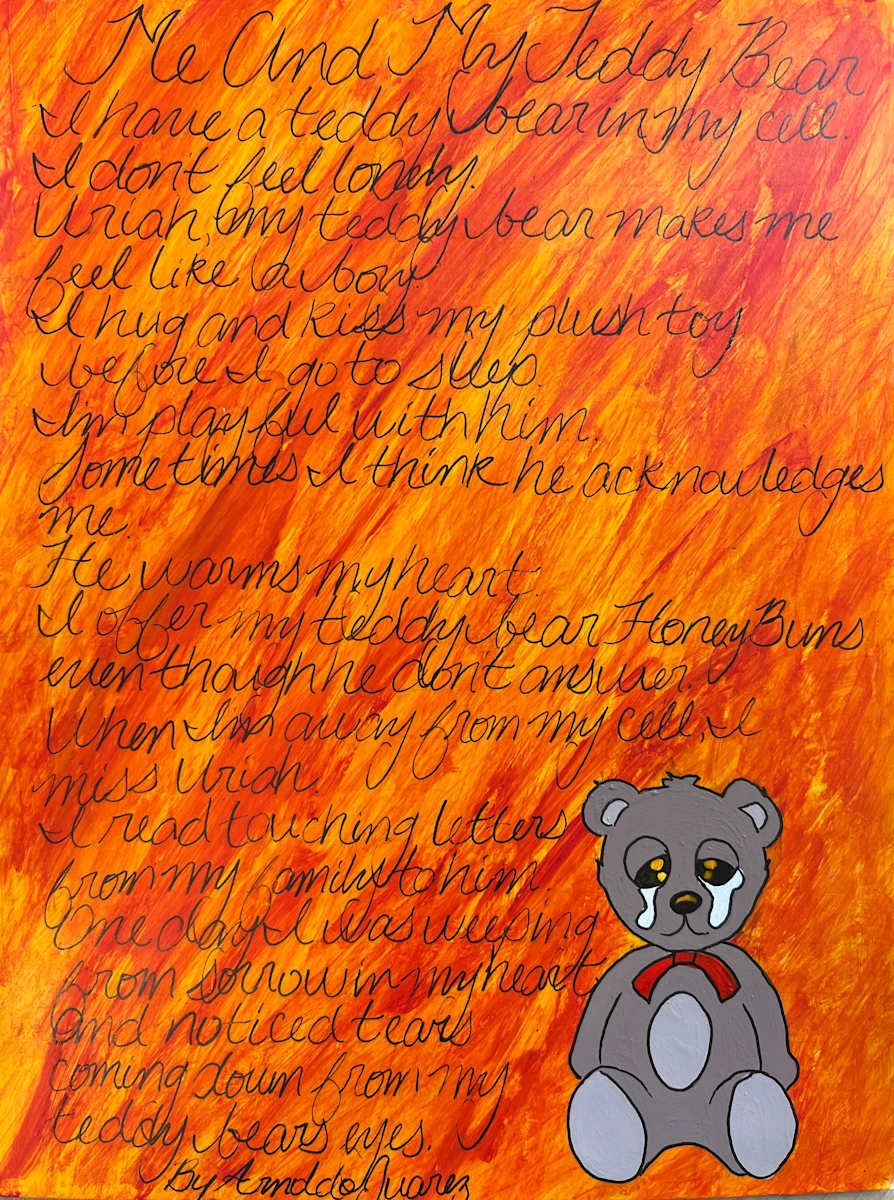 Me And My Teddy Bear
I have a teddy bear in my cell.
I don't feel lonely.
Uriah, my teddy bear makes me
feel like a boy.
I hug and kiss my plush toy
before I go to sleep.
I'm playful with him.
Sometimes I think he acknowledges
me.
He warms my heart.
I offer my teddy bear Honey Buns
even though he don't answer.
When I'm away from my cell, I
miss Uriah.
I read touching letters
from my family to him.
One day I was weeping
from sorrow in my heart
and noticed tears
coming down from my
teddy bears eyes.
By Arnoldo Juarez